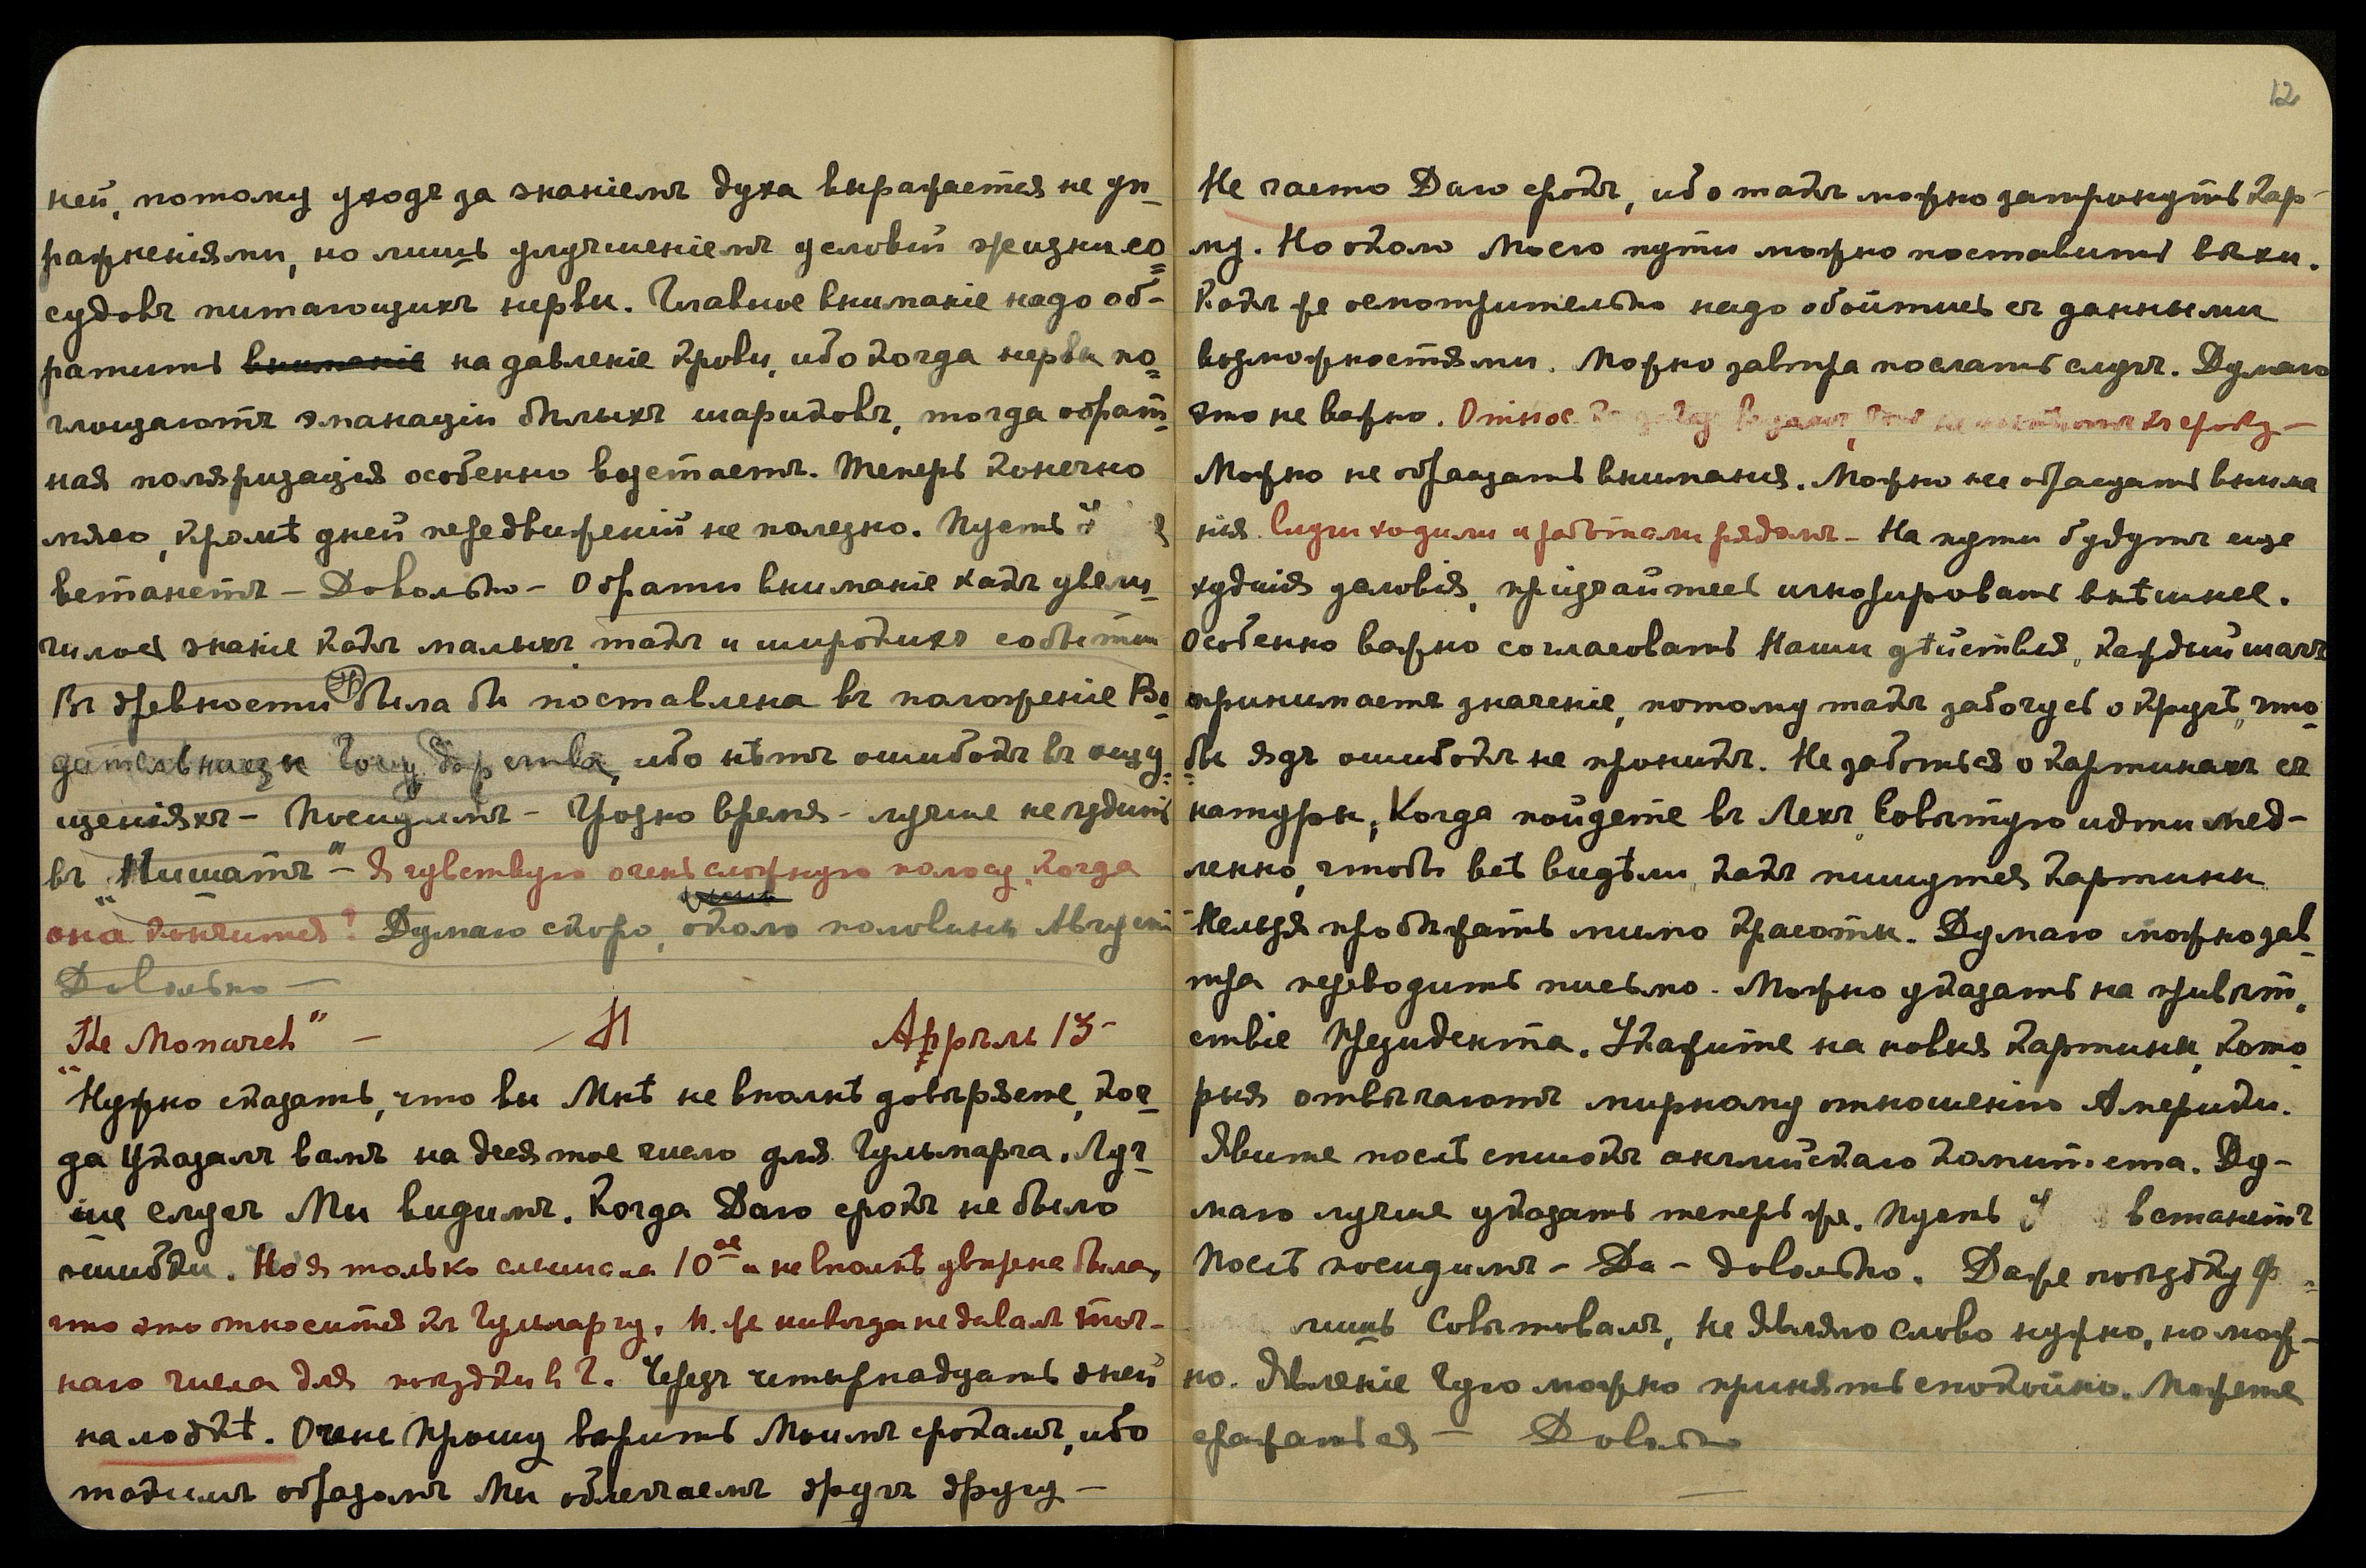 ней, потому уходъ за знаніемъ духа выражается не уп-
ражненіями, но лишь улучшеніемъ условій жизни со-
судовъ питающихъ нервы. Главное вниманіе надо об-
ратить вниманіе на давленіе крови, ибо когда нервы по-
глощаютъ эманаціи бѣлыхъ шариковъ, тогда обрат-
ная поляризація особенно возстаетъ. Теперь конечно
мясо, кромѣ дней передвиженій не полезно. Пусть
встанетъ – Довольно – Обрати вниманіе какъ увели-
чилось знаніе какъ малыхъ такъ и широкихъ событій
Въ древности была бы поставлена въ положеніе Во-
дательницы Государства, ибо нѣтъ ошибокъ въ ощу-
щеніяхъ – Посидимъ – Грозно время – лучше не ѣздить
въ "Нишатъ" – Я чувствую очень сложную полосу, когда
она кончится? Думаю скоро, около половины Августа
Довольно –
"The Monarch" – Апрѣль 13 –
Нужно сказать, что вы Мнѣ не вполнѣ довѣряете, ког-
да Указалъ вамъ на десятое число для Гульмарга. Луч-
ше случъ Мы видимъ. Когда Даю срокъ не было
ошибки. Но я только слышала 10ое и не вполнѣ увѣрена была,
что это относится къ Гульмаргу. М. же никогда не давалъ точ-
наго числа для поѣздки въ Г. Черезъ четырнадцать дней
на лодкѣ. Очень Прошу вѣрить Моимъ срокамъ, ибо
такимъ образомъ Мы облегчаемъ другъ другу –
12
Не часто Даю срокъ, ибо такъ можно затронуть кар-
му. Но около Моего пути можно поставить вѣхи.
Какъ же осмотрительно надо обойтись съ данными
возможностями. Можно завтра послать случъ. Думаю
это не важно. Относ. къ сроку –
Можно не обращать вниманія. Можно не обращать внима
нія. Слуги ходили и работали рядомъ – На пути будутъ еще
худшія условія, пріучайтесь игнорировать внѣшнее.
Особенно важно согласовать Наши дѣйствія, каждый шагъ
принимаетъ значеніе, потому такъ забочусь о кругѣ, что-
бы ядъ ошибокъ не проникъ. Не заботься о картинахъ съ
натуры. Когда пойдете въ Лехъ Совѣтую идти мед-
ленно, чтобы всѣ видѣли, какъ пишутся картины
Нельзя пробѣжать мимо красоты. Думаю можно зав-
тра переводить письмо. Можно указать на привѣт-
ствіе Президента. Укажите на новыя картины, кото-
рыя отвѣчаютъ мирному отношенію Америки.
Явите послѣ списокъ англійскаго комитета. Ду-
маю лучше указать теперь же. Пусть встанетъ
Послѣ посидимъ – Да – довольно. Даже поѣздку Ф
лишь Совѣтовалъ, не Являю слово нужно, но мож-
но. Явленіе Гуго можно принять спокойно. Можете
сражаться – Довольно